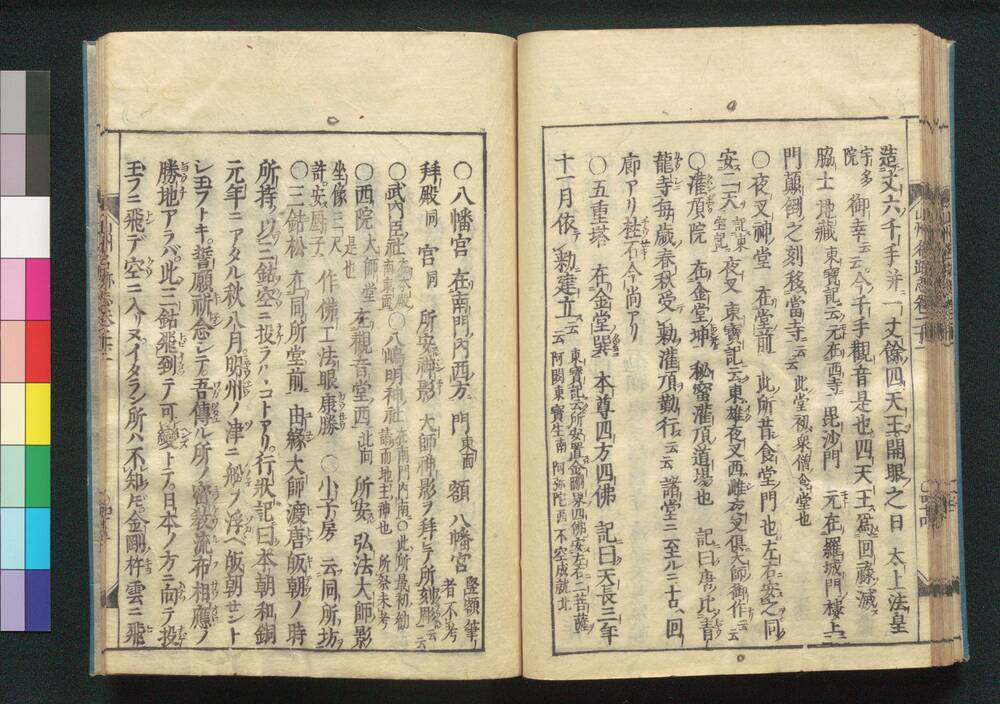 造丈六千手并一丈餘四天王開眼之日 太上法皇
宇多院 御幸云云今千手觀音是也四天王為回祿滅
脇士地藏 東寶記云元在西寺 毘沙門 元在羅城門樓上
門顛倒之刻移當寺云云 此堂初衆僧食堂也
○夜叉神堂 在堂前 此所昔食堂門也左右安之同
安二天 記東寶記 夜叉 東寶記云東雄夜叉西雌夜叉俱大師御作云云
○灌頂院 在金堂坤 秘密灌頂道場也 記曰唐比青
龍寺每歲春秋受 勅灌頂勤行云云 諸堂ニ至ルニ十古回
廊アリ柱石今尚アリ
○五重塔 在金堂巽 本尊四方四佛 記曰天長三年
十一月依 勅建立云云 東寶記云所安置金剛界四佛安左右二菩薩 阿閦東寶生南 阿弥陀西 不空成就北
○八幡宮 在南門ノ内西方 門 東面 額 八幡宮 竪額筆者不考
拜殿 同 宮 同 所安神影 大師神影ヲ拜シテ所刻彫云云
○武内臣社 ○八嶋明神社 在南門内南○此所最初勸請而地主神也 所祭未考
○西院大師堂 是也 在觀音堂西 北向 所安 弘法大師影
坐像三尺許安厨子 作佛工法眼康勝 ○小子房 云同所坊
○三鈷松 在同所堂前 由緣大師渡唐飯朝ノ時
所持ノ以三鈷空ニ投ラルヽコトアリ行狀記曰本朝和銅
元年ニアタル秋八月明州ノ津ニ船ヲ浮ベ飯朝セント
シ玉フトキ誓願祈念シテ吾傳ル所ノ密教流布相應ノ
勝地アラバ此三鈷飛到テ可變トテ日本ノ方ニ向テ投
玉フニ飛デ空ニ入リヌイタラン所ハ不知𪜈金剛杵雲ニ飛